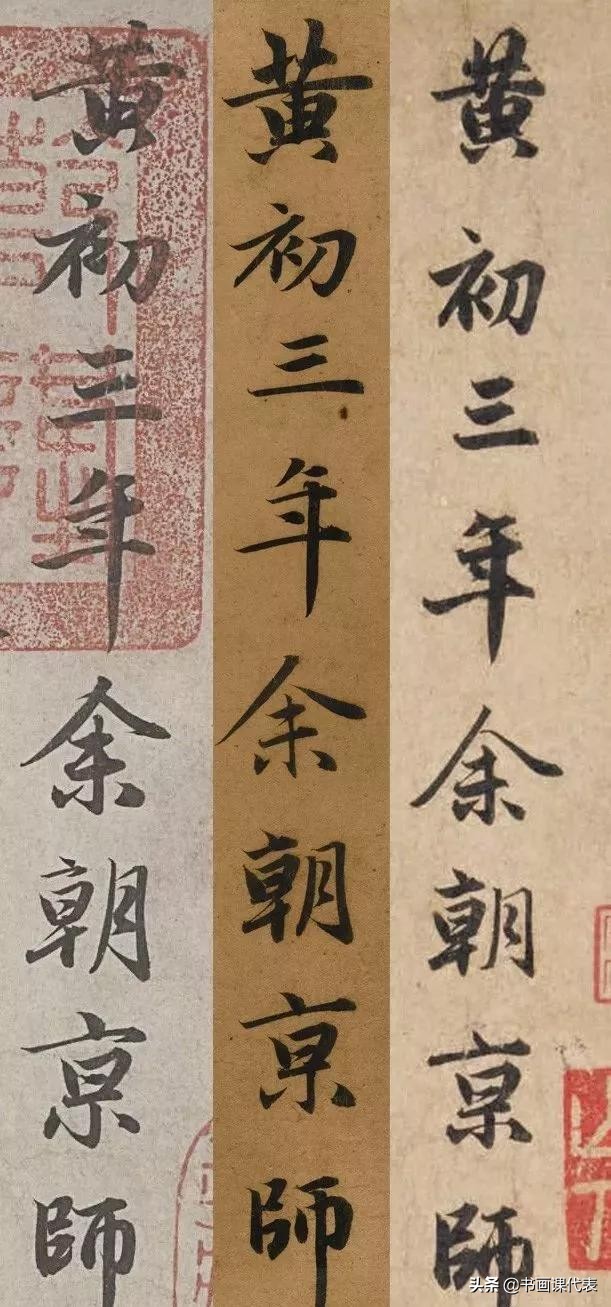 黄初三年余朝亰師
黄初三年余朝亰師
黄初三年余朝亰師
头条 @书画课代表